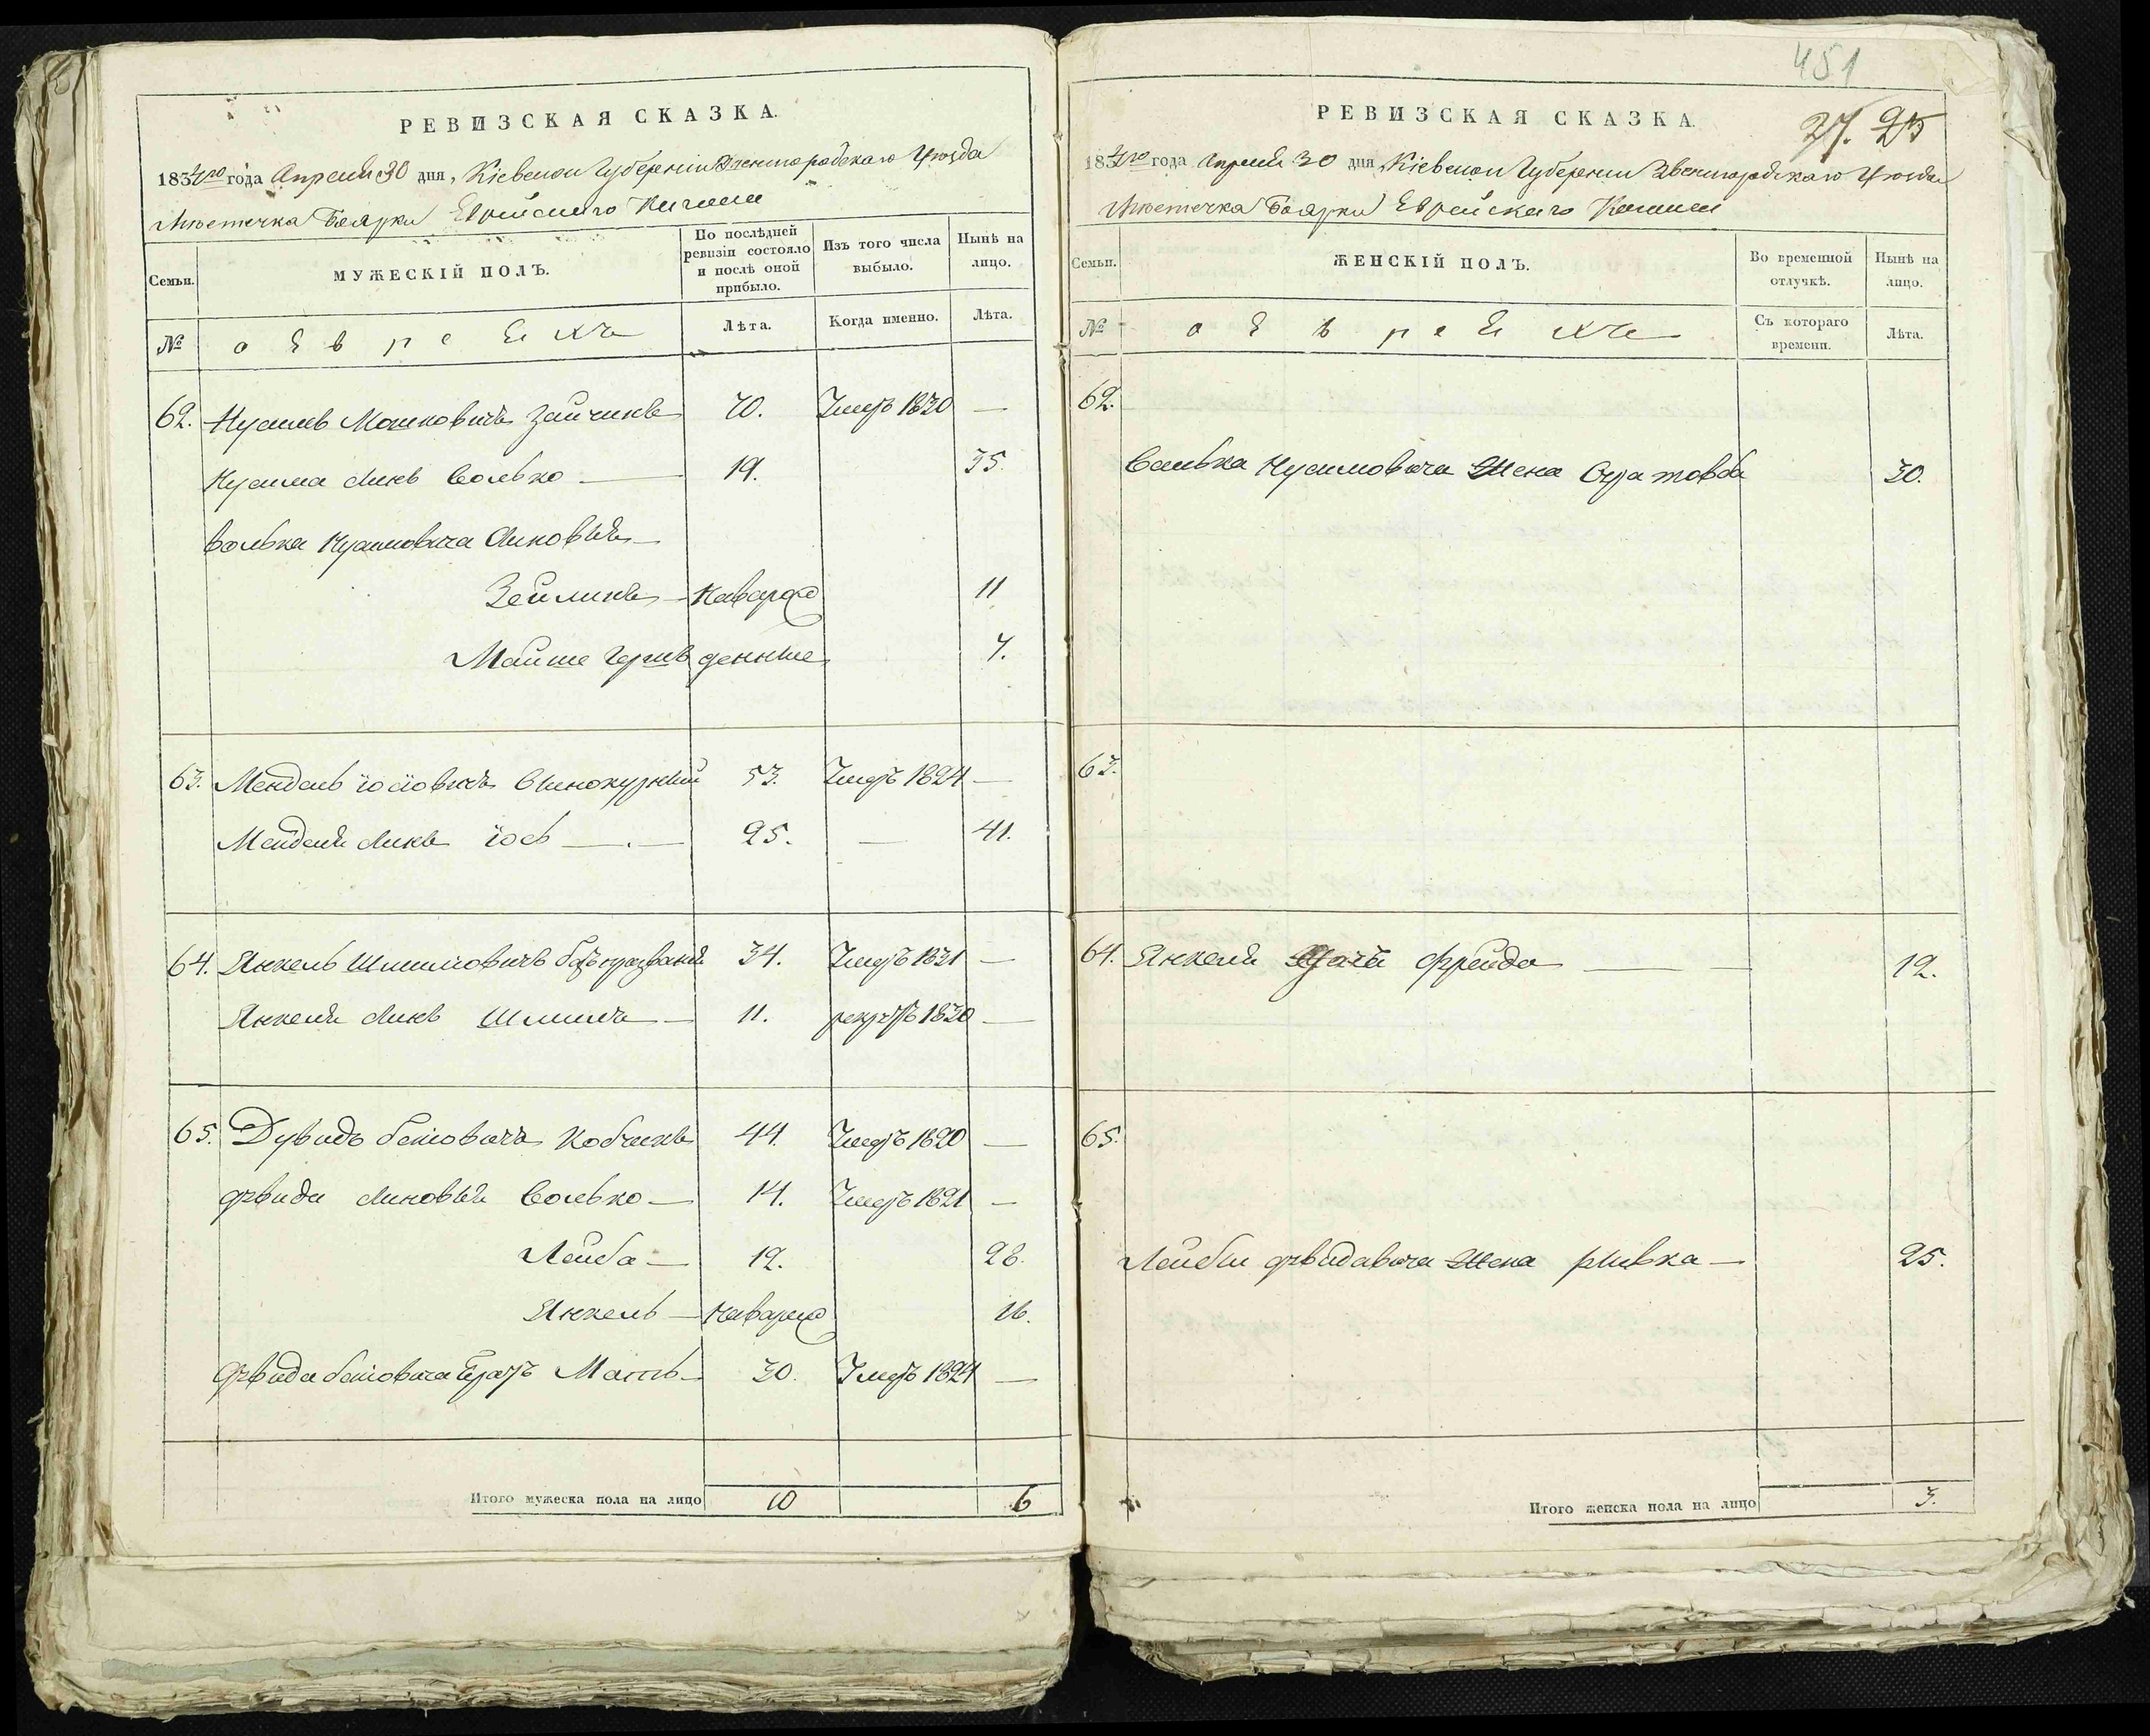 РЕВИЗСКАЯ СКАЗКА.
1834го года Апреля 30 дня, Кіевской Губерніи Звенигородскаго Уѣзда
Мѣстечка Боярки Еврейскаго Кагала
Семьи.
МУЖЕСКІЙ ПОЛЪ.
По послѣдней ревизіи состояло и послѣ оной прибыло.
Изъ того числа выбыло.
Нынѣ на лицо.
№
о Евреяхъ
Лѣта.
Когда именно.
Лѣта.
62. Нусимъ Мошковичъ Зайчикъ 70. Умеръ 1830 —
Нусима сынъ Волько — 19. 35.
Волька Нусимовича сыновья —
Зейликъ — Новорож 11
Мойше денные 7.
63. Мендель Іосіовичъ Винокурный 53. Умеръ 1824 —
Менделя сынъ Іось — 25. — 41.
64. Янкель Шмилиовичъ 34. Умеръ 1831 —
Янкеля сынъ Шмиль — 11. рекрутъ 1830 —
65. Дувидъ Беніовичъ Кобчикъ 44. Умеръ 1820 —
Дувида сыновья Волько — 14. Умеръ 1821 —
Лейба — 12. 28.
Янкель — Новорож 16.
Дувида Беніовича братъ Моть — 30. Умеръ 1824 —
Итого мужеска пола на лицо 10 6
451
27. 25
РЕВИЗСКАЯ СКАЗКА.
1834го года Апреля 30 дня, Кіевской Губерніи Звенигородскаго Уѣзда
Мѣстечка Боярки Еврейскаго Кагала
Семьи.
ЖЕНСКІЙ ПОЛЪ.
Во временной отлучкѣ.
Нынѣ на лицо.
№
о Евреяхъ
Съ котораго времени.
Лѣта.
62.
Волька Нусимовича Жена 30.
63.
64. Янкеля дочь Фрейда — 12.
65.
Лейбы Дувидовича Жена Ривка — 25.
Итого женска пола на лицо 3.